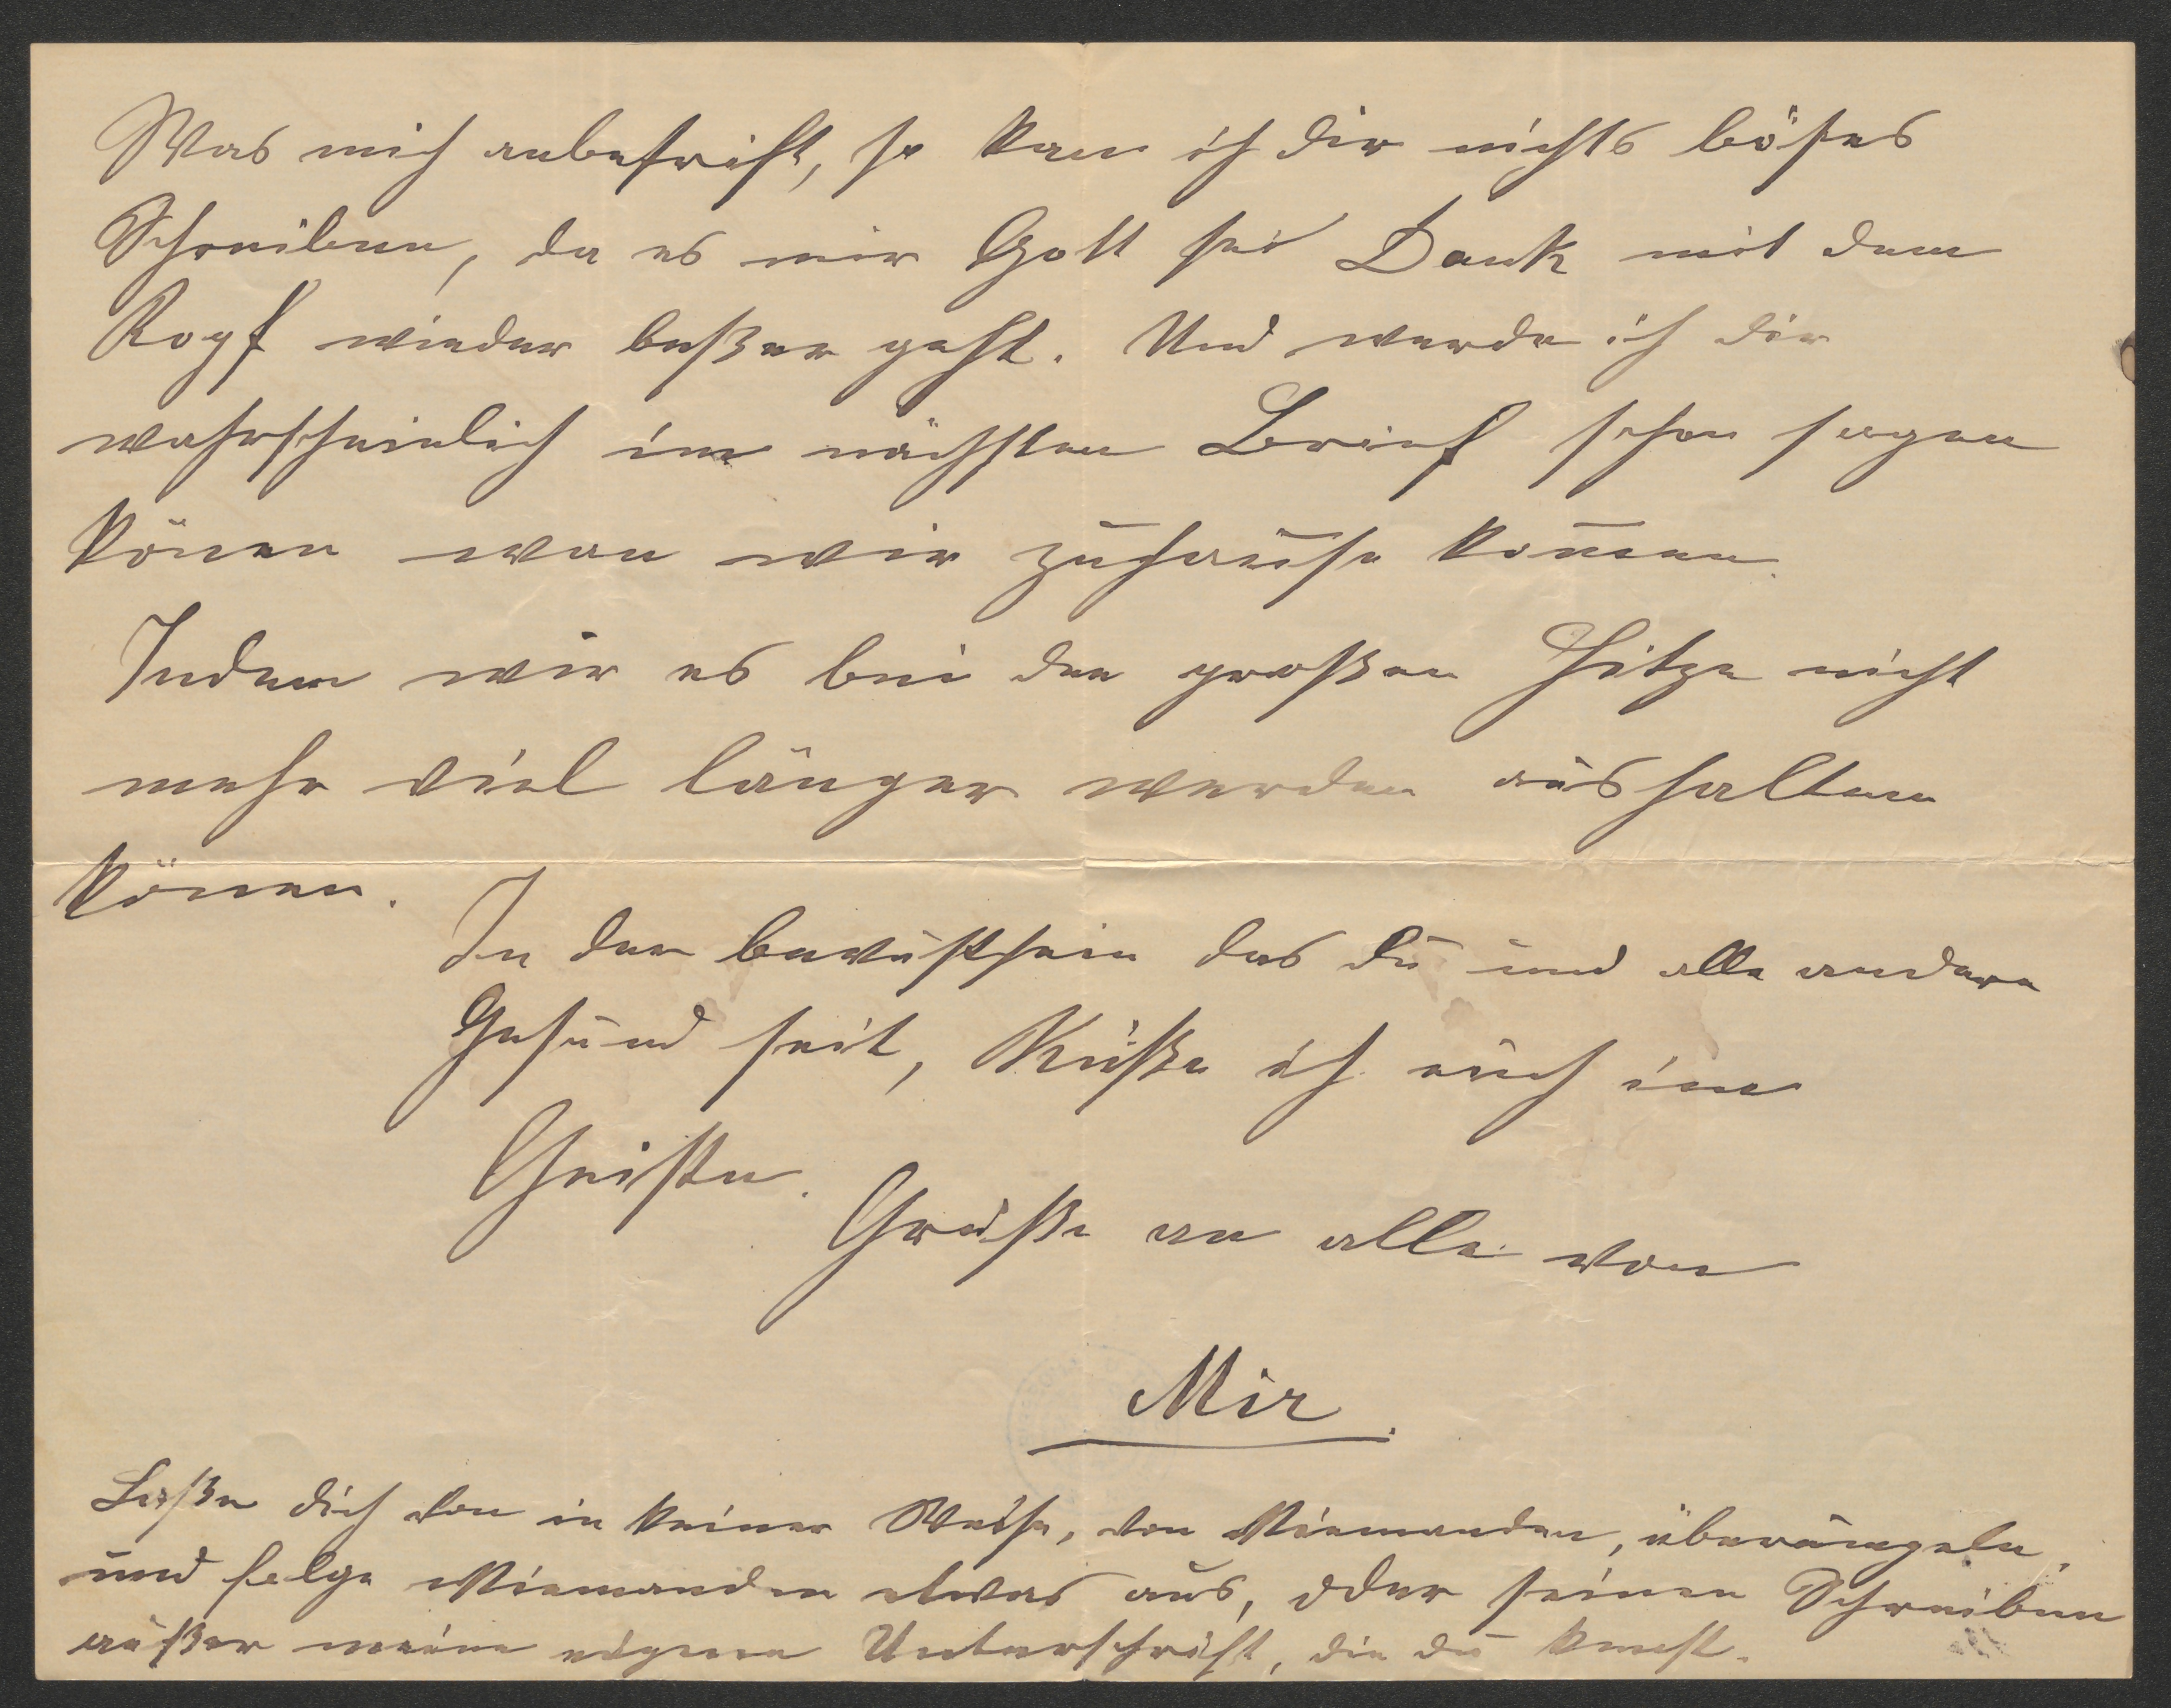 Was mich anbetrift, so kan ich dir nichts böses
Schreiben, da es mir Gott sei Dank mit dem
Kopf wieder beßer geht. Und werde ich dir
wahrscheinlich im nächsten Brief schon sagen
könen wan wir zuhause kom̄en.
Indem wir es bei der großen Hitze nicht
mehr viel länger werden aushalten
könen.
In der bewustsein das du und alle andere
Gesund seit, Küße ich euch im
Geiste.
Grüße an alle von
Mir.
Laße dich von in keiner Weise, von Niemanden, überrumpeln,
und folge Niemanden etwas aus, oder seinen Schreiben
außer meine eigene Unterschrift, die du kenst.